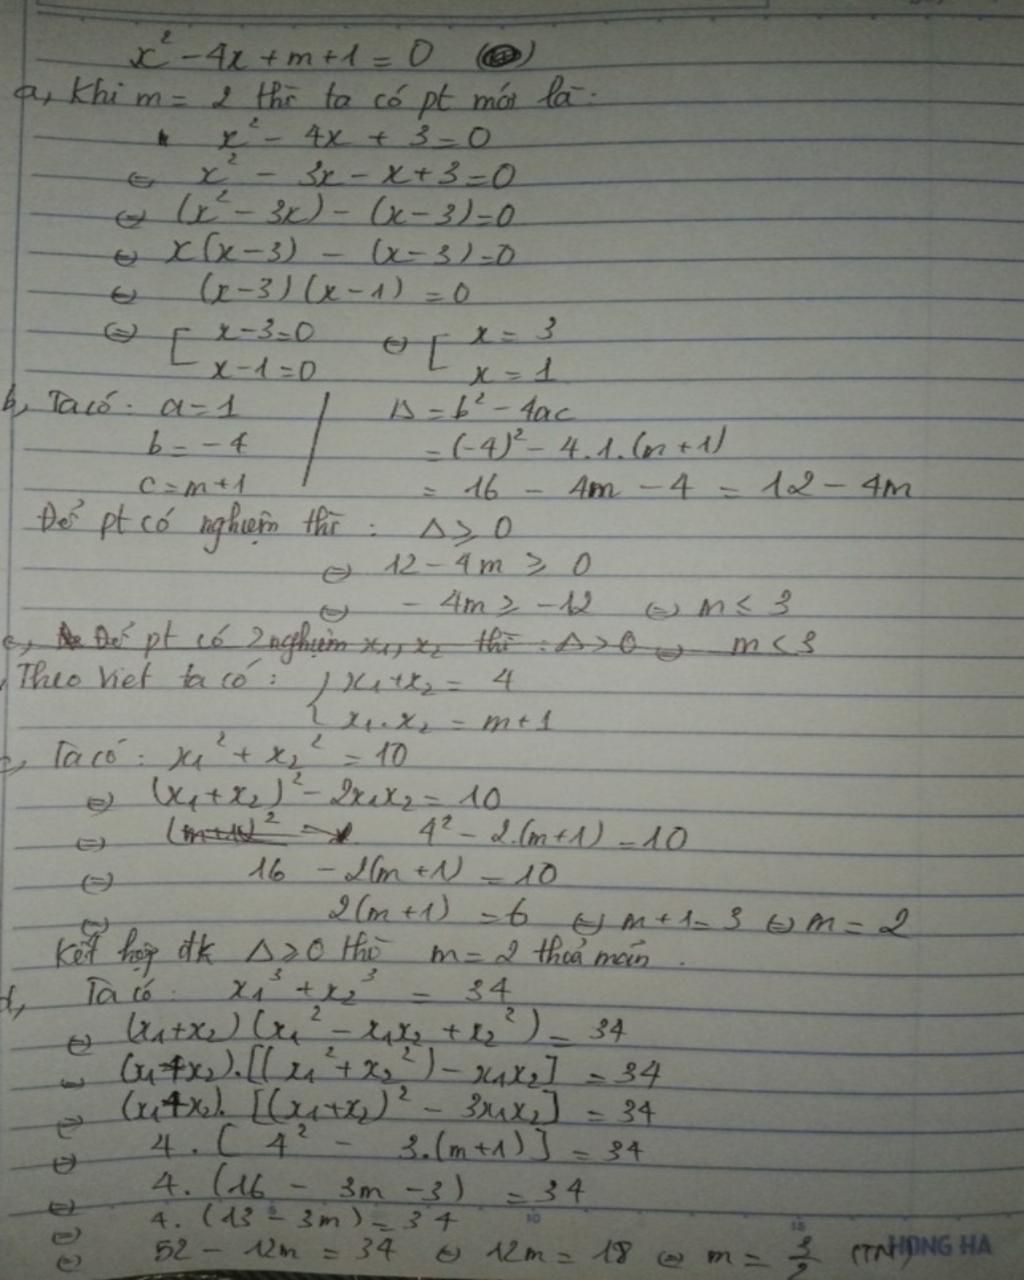 x² - 4x + m + 1 = 0
a, Khi m = 2 thì ta có pt mới là:
x² - 4x + 3 = 0
⇔ x² - 3x - x + 3 = 0
⇔ (x² - 3x) - (x - 3) = 0
⇔ x(x - 3) - (x - 3) = 0
⇔ (x - 3)(x - 1) = 0
⇔ [ x - 3 = 0 ⇔ [ x = 3
x - 1 = 0 x = 1
b, Ta có: a = 1 | Δ = b² - 4ac
b = -4 = (-4)² - 4.1.(m + 1)
c = m + 1 = 16 - 4m - 4 = 12 - 4m
Để pt có nghiệm thì: Δ ≥ 0
⇔ 12 - 4m ≥ 0
⇔ - 4m ≥ -12 ⇔ m ≤ 3
c, Để pt có 2 nghiệm x₁, x₂ thì: Δ > 0 ⇔ m < 3
Theo Viet ta có: { x₁ + x₂ = 4
x₁ . x₂ = m + 1
c, Ta có: x₁² + x₂² = 10
⇔ (x₁ + x₂)² - 2x₁x₂ = 10
⇔ 4² - 2.(m + 1) = 10
⇔ 16 - 2(m + 1) = 10
⇔ 2(m + 1) = 6 ⇔ m + 1 = 3 ⇔ m = 2
Kết hợp đk Δ ≥ 0 thì m = 2 thoả mãn.
d, Ta có: x₁³ + x₂³ = 34
⇔ (x₁ + x₂)(x₁² - x₁x₂ + x₂²) = 34
⇔ (x₁ + x₂).[(x₁² + x₂²) - x₁x₂] = 34
⇔ (x₁ + x₂).[(x₁ + x₂)² - 3x₁x₂] = 34
⇔ 4.[4² - 3.(m + 1)] = 34
⇔ 4.(16 - 3m - 3) = 34
⇔ 4.(13 - 3m) = 34
⇔ 52 - 12m = 34 ⇔ 12m = 18 ⇔ m = 3/2 (TN)
HONG HA